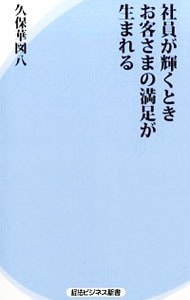 社員が輝くとき
お客さまの満足が
生まれる
久保華図八
経法ビジネス新書